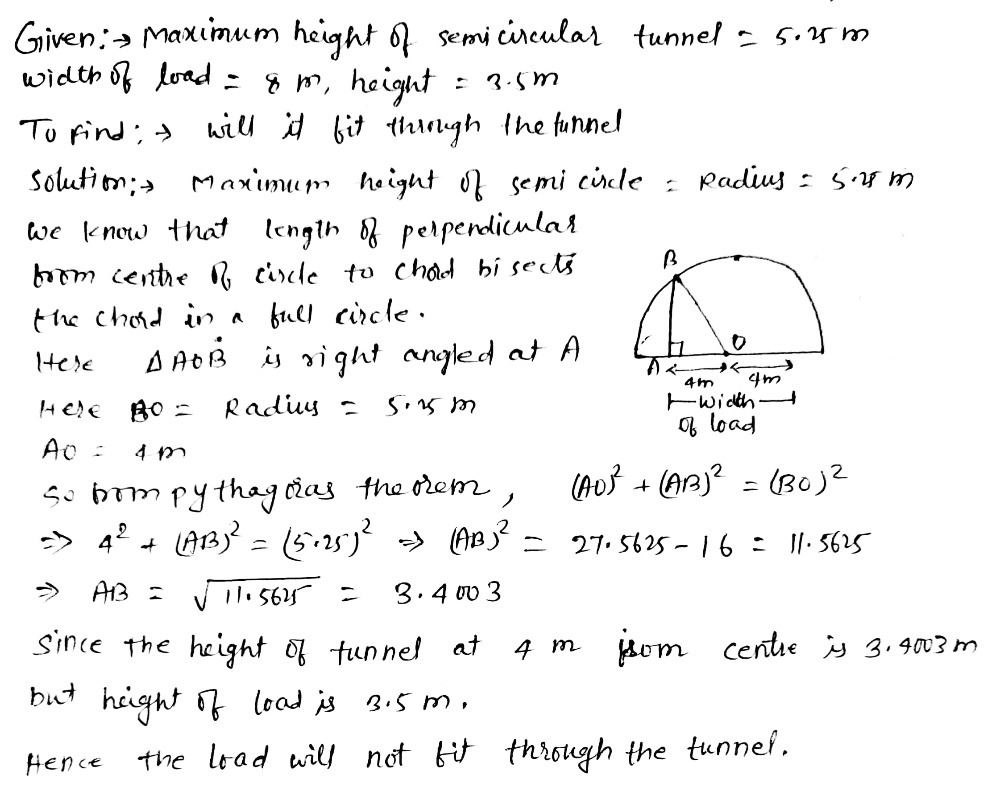 Given:→ Maximum height of semicircular tunnel = 5.25 m
width of load = 8 m, height = 3.5m
To find:→ will it fit through the tunnel
Solution:→ Maximum height of semi circle = Radius = 5.25 m
we know that length of perpendicular
from centre of circle to chord bisects
the chord in a full circle.
Here ΔAOB is right angled at A
Here BO = Radius = 5.25 m
AO = 4 m
B
O
A
4m 4m
width
of load
So from pythagoras theorem, (AO)² + (AB)² = (BO)²
⇒ 4² + (AB)² = (5.25)² ⇒ (AB)² = 27.5625 - 16 = 11.5625
⇒ AB = √11.5625 = 3.4003
Since the height of tunnel at 4 m from centre is 3.4003 m
but height of load is 3.5 m.
Hence the load will not fit through the tunnel.